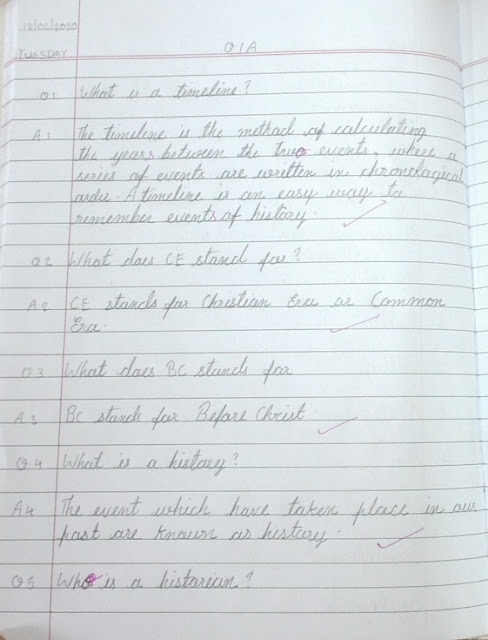 18/02/2020
TUESDAY
Q/A
Q1 What is a timeline?
A1 The timeline is the method of calculating
the years between the two events, where a
series of events are written in chronological
order. A timeline is an easy way to
remember events of history.
Q2 What does CE stand for?
A2 CE stands for Christian Era or Common
Era.
Q3 What does BC stands for
A3 BC stand for Before Christ
Q4 What is a history?
A4 The event which have taken place in our
past are known as history.
Q5 Who is a historian?